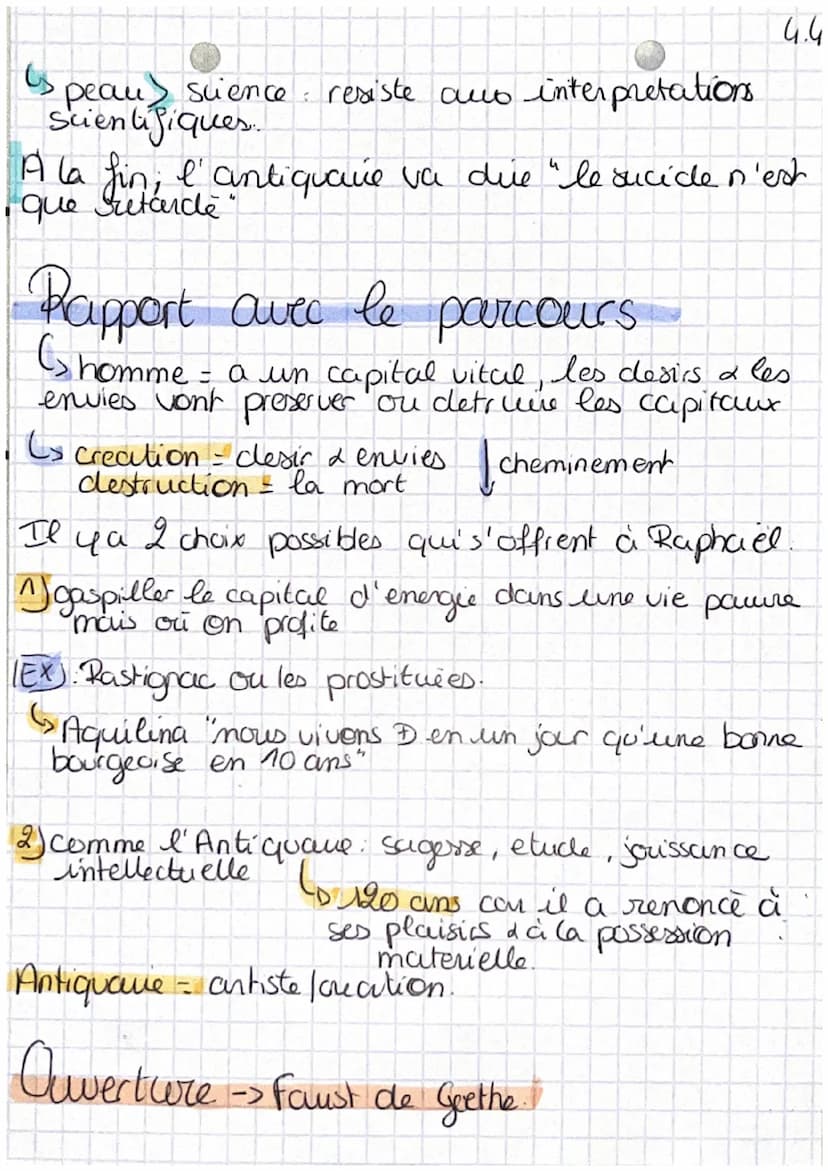 4.4
↳ peau > science : resiste aux interpretations
scientifiques.
A la fin, l'antiquaire va dire "le sucide n'est
que retardé"
Rapport avec le parcours
↳ homme = a un capital vital, les desirs & les
envies vont preserver ou detruire les capitaux
↳ creation = desir & envies ↓ cheminement
destruction = la mort
Il y a 2 choix possibles qui s'offrent à Raphaël.
1) gaspiller le capital d'energie dans une vie pauvre
mais où on profite
(EX): Rastignac ou les prostituées.
↳ Aquilina "nous vivons + en un jour qu'une bonne
bourgeoise en 10 ans"
2) comme l'Antiquaire : sagesse, etude, jouissance
intellectuelle
↳ 120 ans car il a renoncé à
ses plaisirs & à la possession
materielle.
Antiquaire = artiste/creation.
Ouverture -> Faust de Goethe.